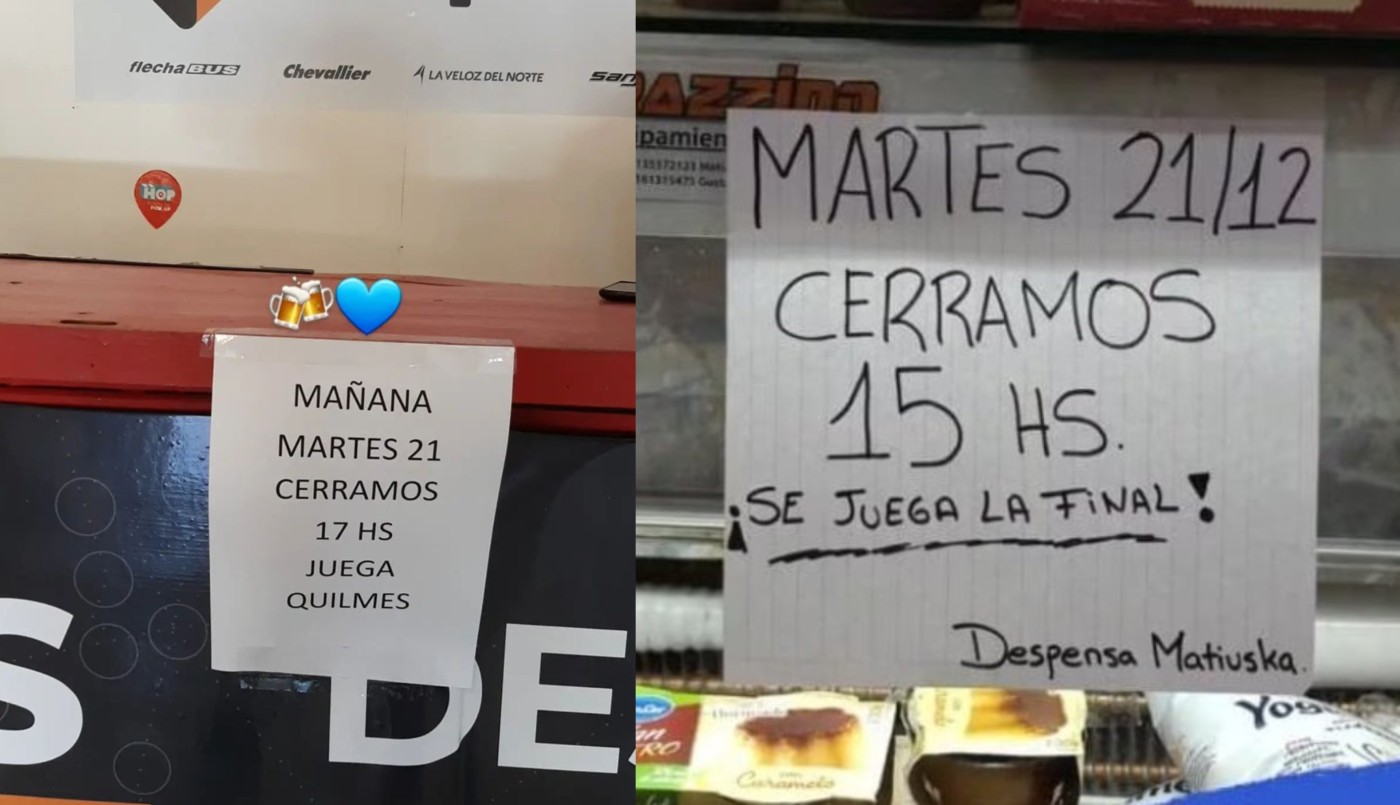 flechaBUS Chevallier LA VELOZ DEL NORTE
HOP
MAÑANA
MARTES 21
CERRAMOS
17 HS
JUEGA
QUILMES
S DE
MARTES 21/12
CERRAMOS
15 HS.
¡SE JUEGA LA FINAL!
Despensa Matiuska.
Caramelo